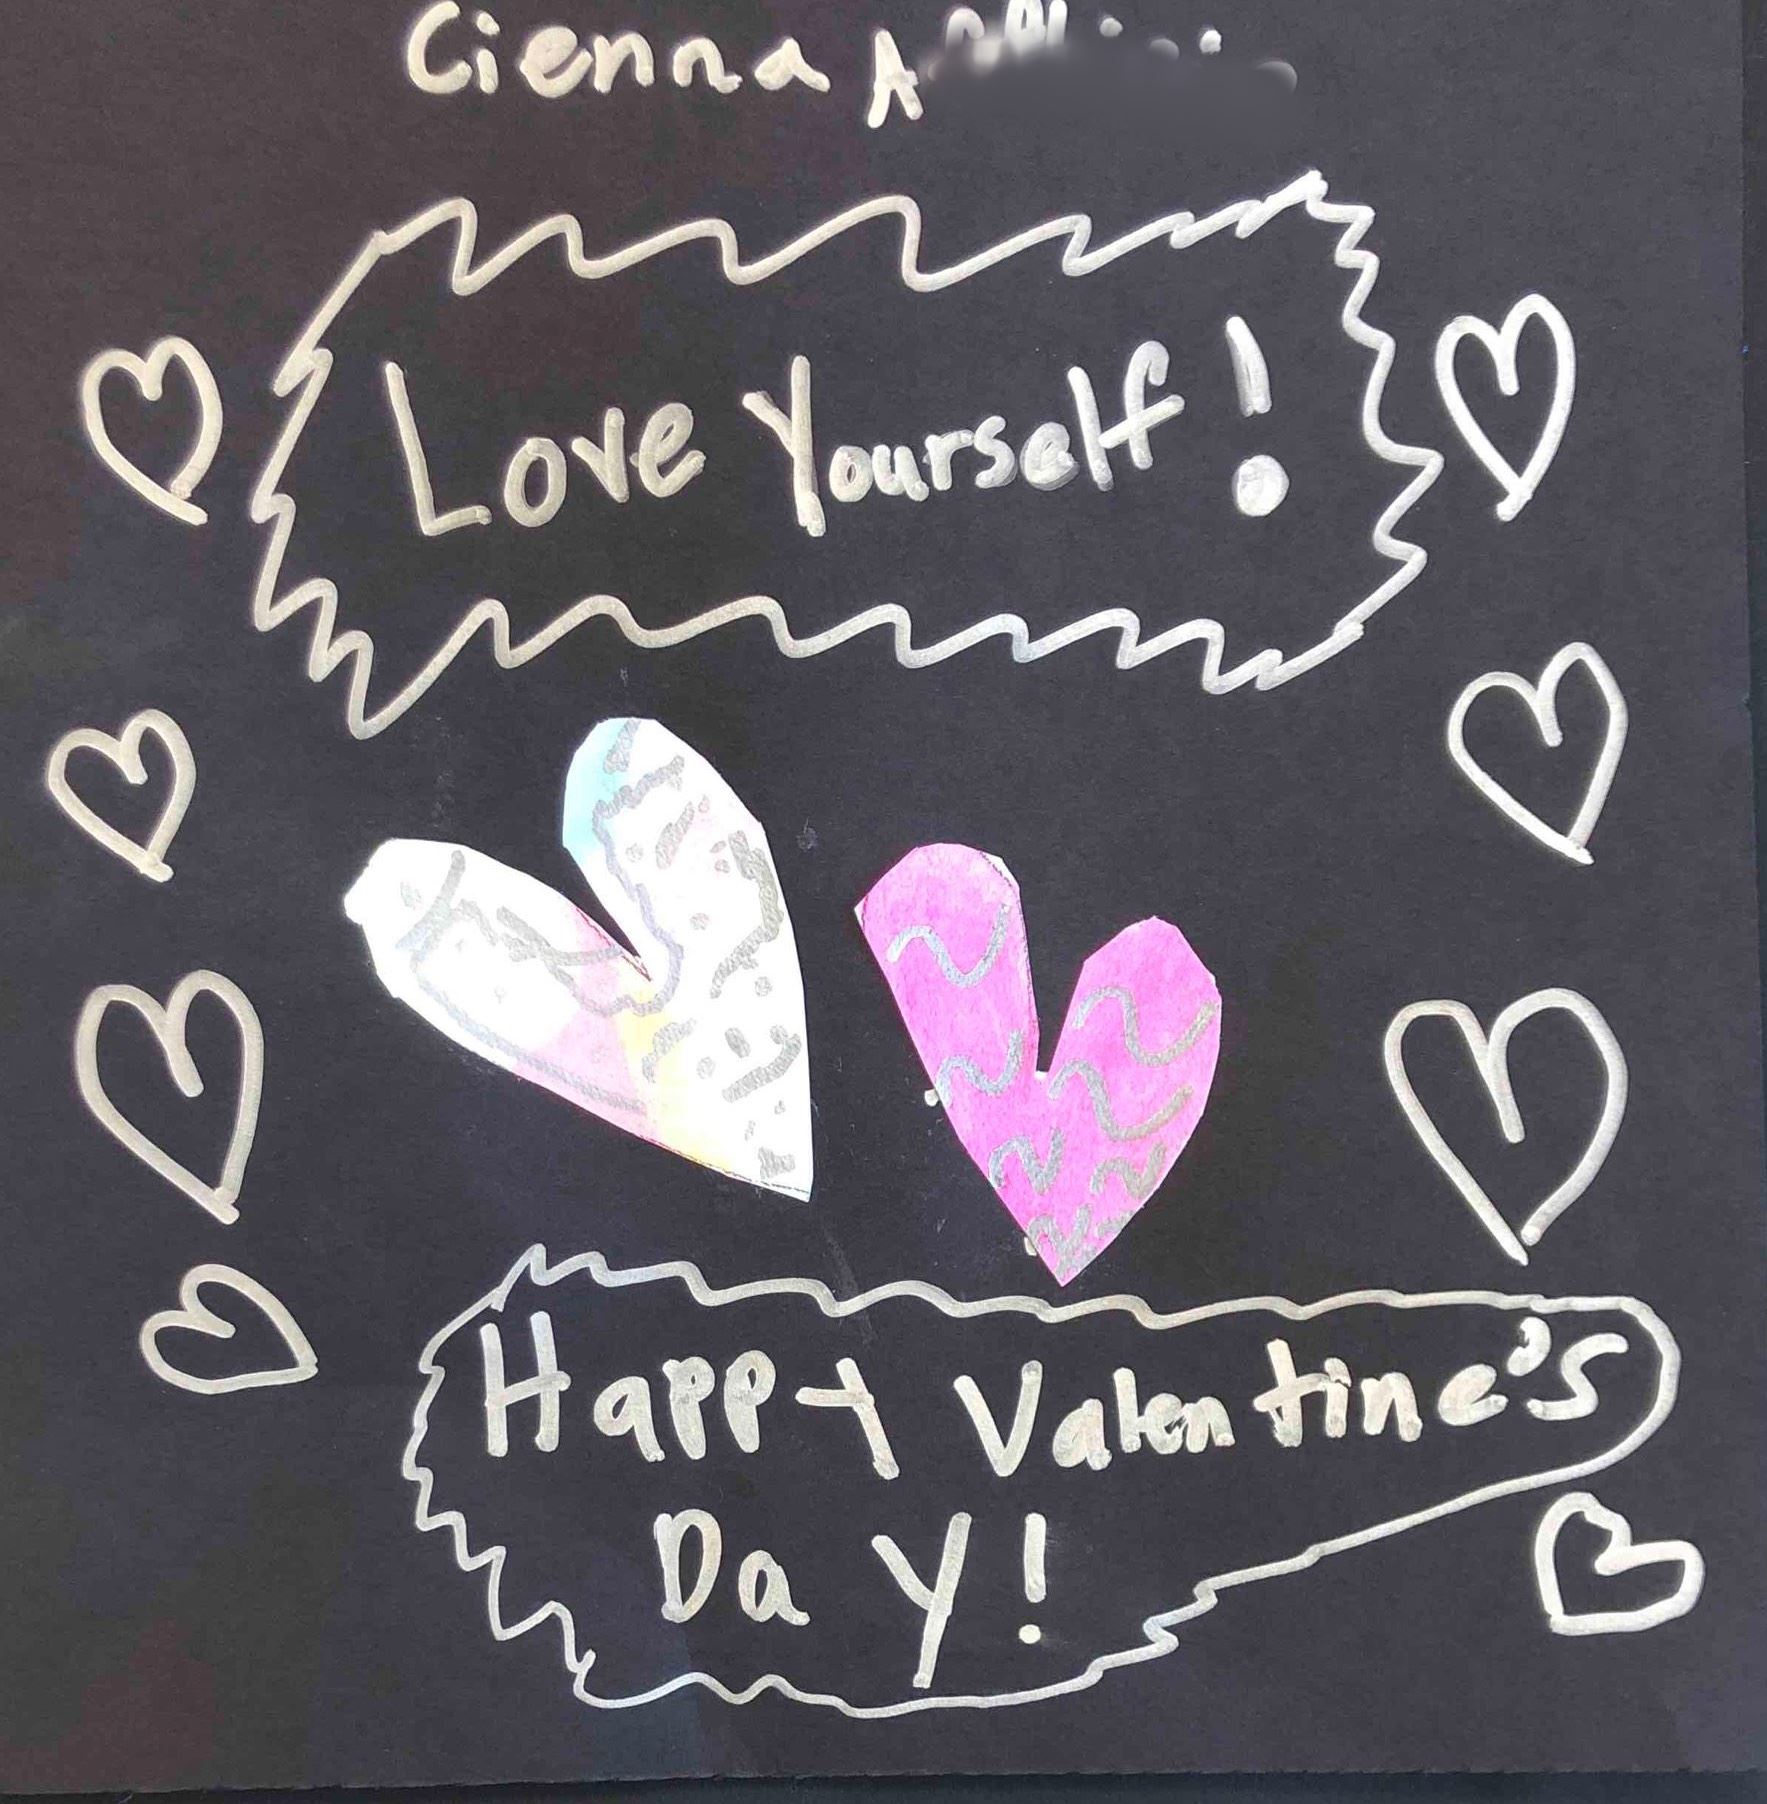 Cienna A
Love Yourself!
Happy Valentine's
Day!